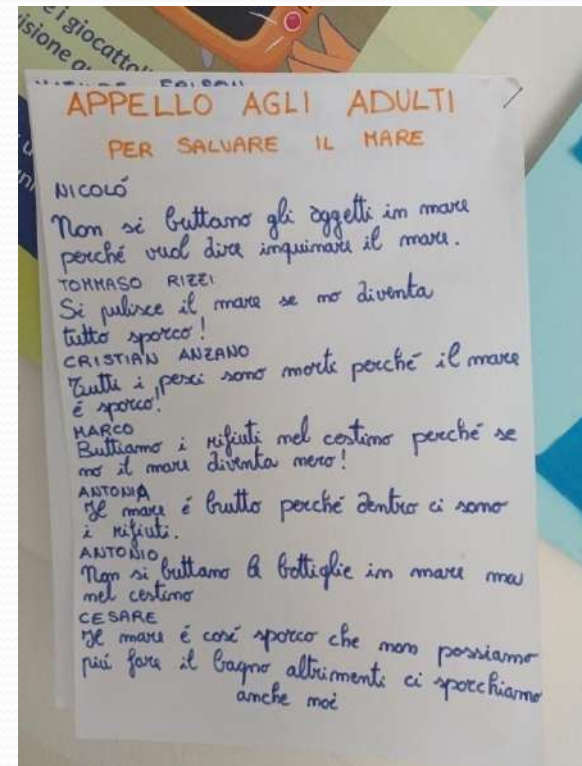 e i giocattol
isione
APPELLO AGLI ADULTI
PER SALVARE IL MARE
NICOLÓ
Non si buttano gli oggetti in mare
perché vuol dire inquinare il mare.
TOMMASO RIZZI
Si pulisce il mare se no diventa
tutto sporco!
CRISTIAN ANZANO
Tutti i pesci sono morti perché il mare
é sporco!
MARCO
Buttiamo i rifiuti nel cestino perché se
no il mare diventa nero!
ANTONIA
Il mare é brutto perché dentro ci sono
i rifiuti.
ANTONIO
Non si buttano le bottiglie in mare ma
nel cestino
CESARE
Il mare é cosí sporco che non possiamo
piú fare il bagno altrimenti ci sporchiamo
anche noi